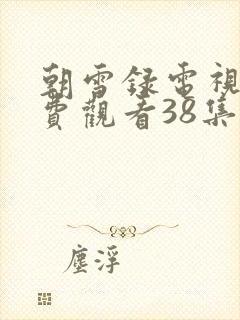 朝雪録電視
費觀看38集
塵浮